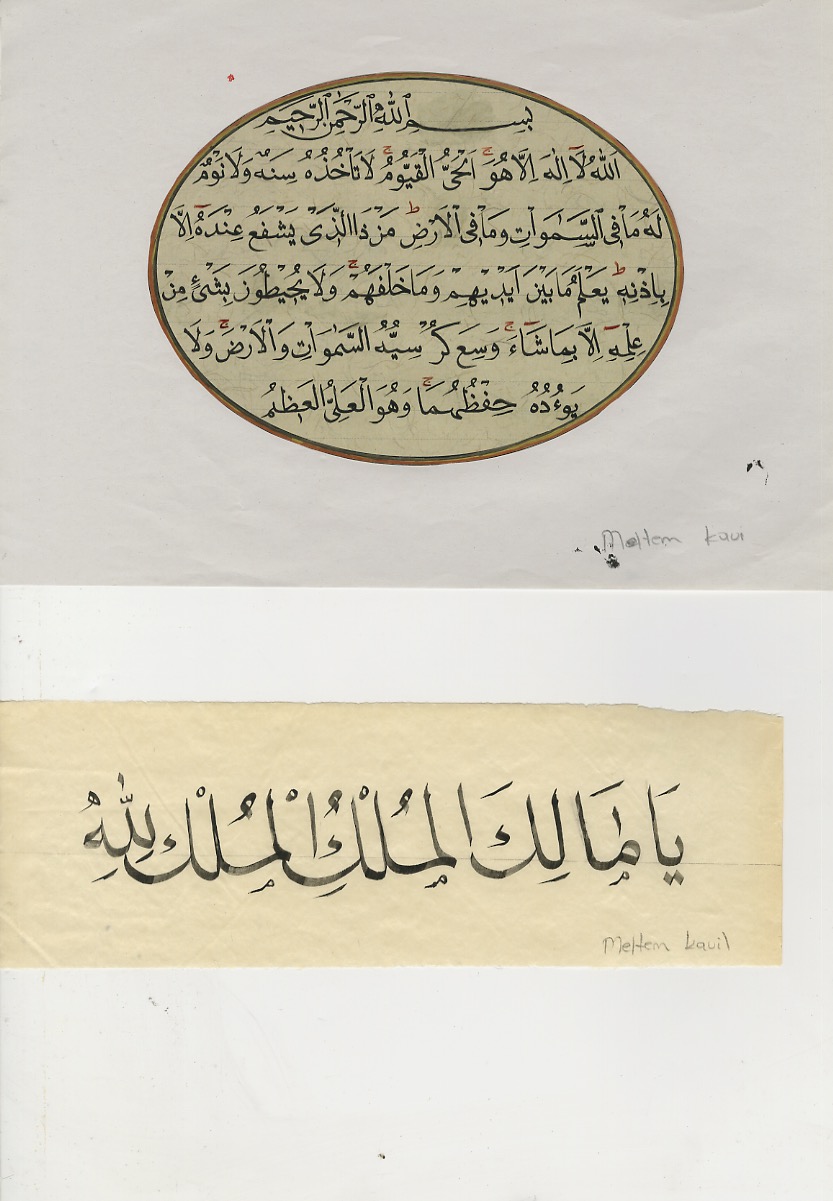 بِسْمِ اللهِ الرَّحْمٰنِ الرَّحِيمِ
اَللهُ لَٓا اِلٰهَ اِلَّا هُوَ ۚ اَلْحَيُّ الْقَيُّومُ ۚ لَا تَأْخُذُهُ سِنَةٌ وَلَا نَوْمٌ
لَهُ مَا فِى السَّمٰوَاتِ وَمَا فِى الْاَرْضِ ۗ مَنْ ذَا الَّذِى يَشْفَعُ عِنْدَهُٓ اِلَّا
بِاِذْنِهِ ۗ يَعْلَمُ مَا بَيْنَ اَيْدِيهِمْ وَمَا خَلْفَهُمْ ۚ وَلَا يُحِيطُونَ بِشَىْءٍ مِنْ
عِلْمِهِٓ اِلَّا بِمَا شَٓاءَ ۚ وَسِعَ كُرْسِيُّهُ السَّمٰوَاتِ وَالْاَرْضَ ۚ وَلَا
يَؤُدُهُ حِفْظُهُمَا ۚ وَهُوَ الْعَلِىُّ الْعَظِيمُ
Meltem kavi
يَا مَالِكَ الْمُلْكِ اَلْمُلْكُ لِلّٰهِ
Meltem kavil